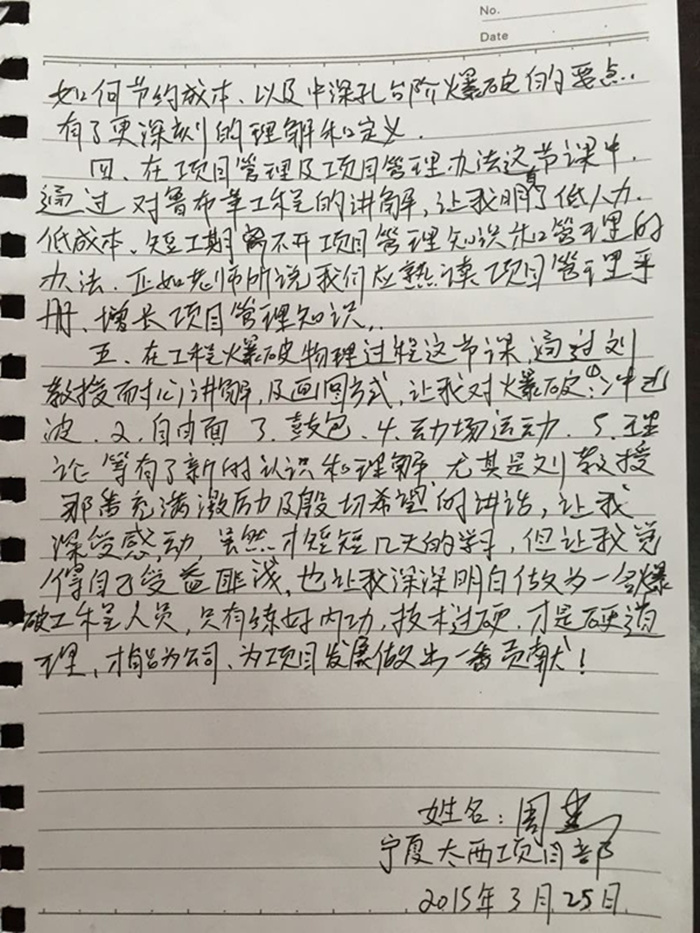 No.
Date
如何节约成本、以及中深孔台阶爆破的要点.
有了更深刻的理解和定义.
四、在项目管理及项目管理办法这节课中,
通过对鲁布革工程的讲解,让我明了低人力.
低成本、短工期离不开项目管理知识和管理的
办法.正如老师所说我们应熟读项目管理手
册、增长项目管理知识.
五、在工程爆破物理过程这节课,通过刘
教授耐心讲解,及画图方式,让我对爆破①冲击
波.2.自由面 3.鼓包.4.动场运动.5.理
论等有了新的认识和理解 尤其是刘教授
那番充满激历力及殷切希望的讲话,让我
深受感动,虽然才短短几天的学习,但让我觉
得自己受益匪浅,也让我深深明白做为一名爆
破工程人员,只有练好内功,技术过硬.才是硬道
理,才能为公司、为项目发展做出一番贡献!
姓名:周
宁夏太西项目部
2015年3月25日